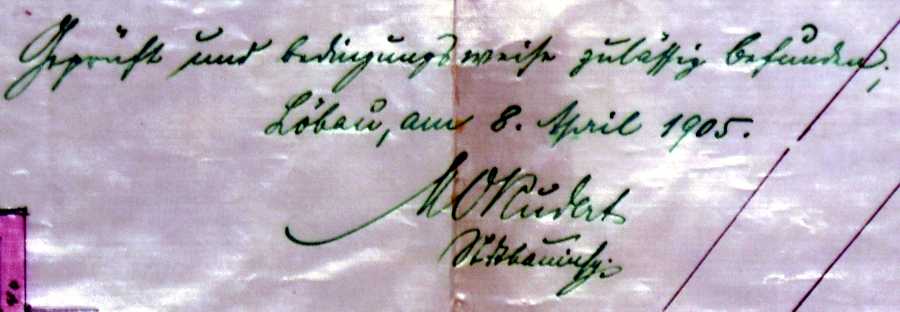 Geprüft und bedingungsweise zulässig befunden,
Löbau, am 8. April 1905.